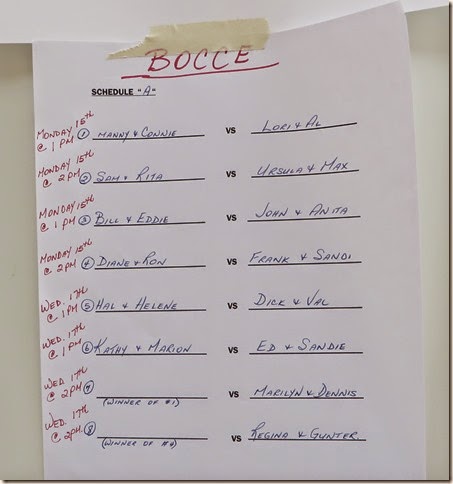 BOCCE
SCHEDULE "A"
MONDAY 15th @ 1 PM ① MANNY & CONNIE VS LORI & AL
MONDAY 15th @ 2 PM ② SAM & RITA VS URSULA & MAX
MONDAY 15th @ 1 PM ③ BILL & EDDIE VS JOHN & ANITA
MONDAY 15th @ 2 PM ④ DIANE & RON VS FRANK & SANDI
WED. 17th @ 1 PM ⑤ HAL & HELENE VS DICK & VAL
WED. 17th @ 1 PM ⑥ KATHY & MARION VS ED & SANDIE
WED 17th @ 2 PM ⑦ VS MARILYN & DENNIS
(WINNER OF #1)
WED. 17th @ 2 PM. ⑧ VS REGINA & GUNTER
(WINNER OF #4)